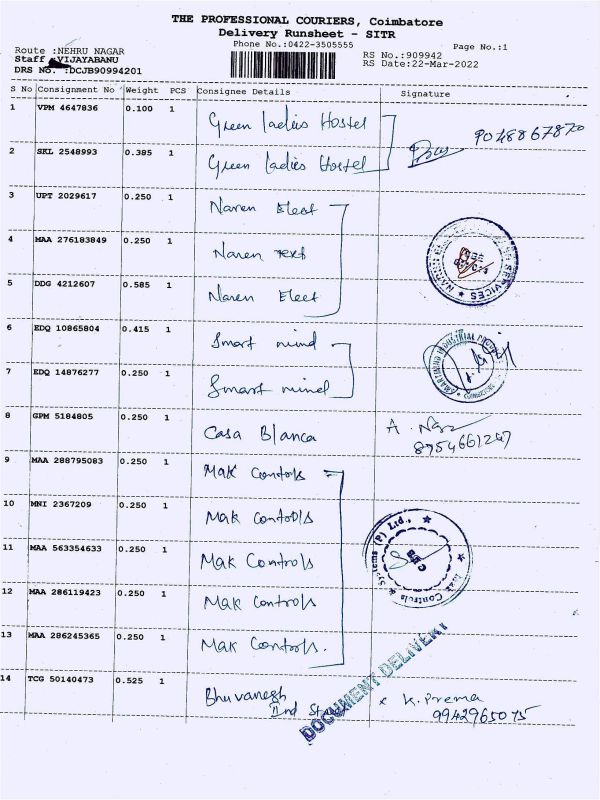 THE PROFESSIONAL COURIERS, Coimbatore
Delivery Runsheet - SITR
Phone No.:0422-3505555
Page No.:1
Route :NEHRU NAGAR
RS No.:909942
Staff :VIJAYABANU
RS Date:22-Mar-2022
DRS No. :DCJB90994201
S No Consignment No Weight PCS Consignee Details Signature
1 VPM 4647836 0.100 1 Green ladies Hostel
9048867870
2 SKL 2548993 0.385 1 Green ladies Hostel
3 UPT 2029617 0.250 1 Naren Elect
4 MAA 276183849 0.250 1 Naren text
SERVICES ★
5 DDG 4212607 0.585 1 Naren Elect
6 EDQ 10865804 0.415 1 Smart mind
7 EDQ 14876277 0.250 1 Smart mind
8 GPM 5184805 0.250 1 Casa Blanca
8754661247
9 MAA 288795083 0.250 1 Mak Controls
10 MNI 2367209 0.250 1 Mak Controls
11 MAA 563354633 0.250 1 Mak Controls
Mak Controls & Systems (P) Ltd., ★
CBE
12 MAA 286119423 0.250 1 Mak Controls
13 MAA 286245365 0.250 1 Mak Controls.
DOCUMENT DELIVERY
14 TCG 50140473 0.525 1 Bhuvanesh
IInd Street
x K. Prema
9942965075